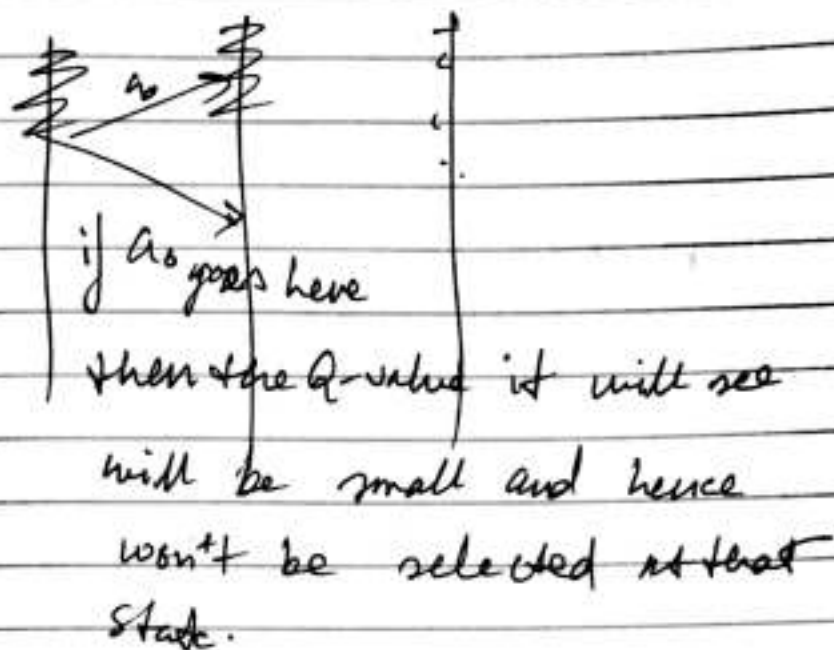 a₀
if a₀ goes here
then the Q-value it will see
will be small and hence
won't be selected at that
state.